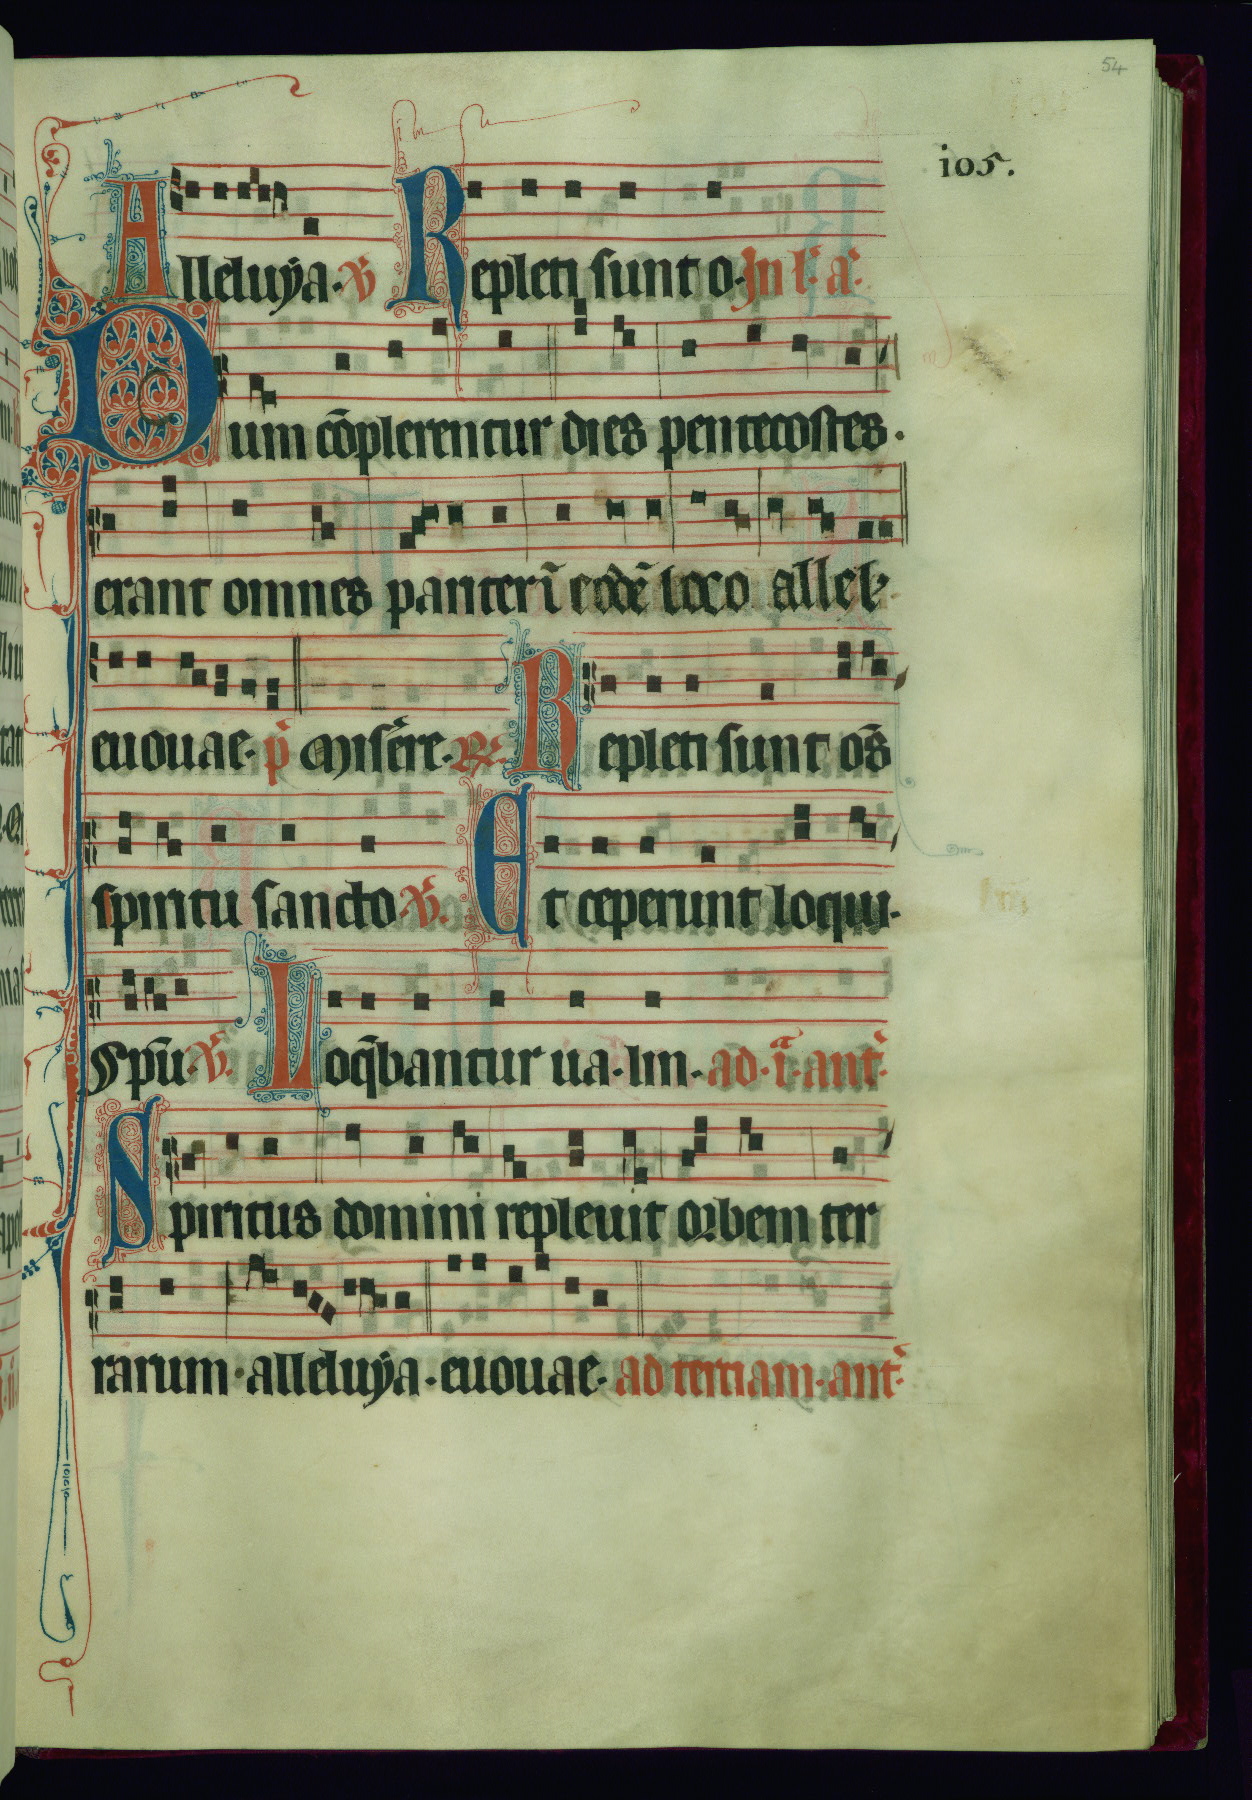 54
io5.
Alleluÿa. V̄ Repleti sunt o. In l. a.
Dum cōplerentur dies pentecostes.
erant omnes pariter ī eodē loco allel.
euouae. p̄ Miserere. R. Repleti sunt om̄s
spiritu sancto. V̄. Et ceperunt loqui.
Sp̄u. V̄. Loq̄bantur ua. lin. ad. i.ª ant.
Spiritus domini repleuit orbem ter
rarum. alleluÿa. euouae. ad tertiam. ant.